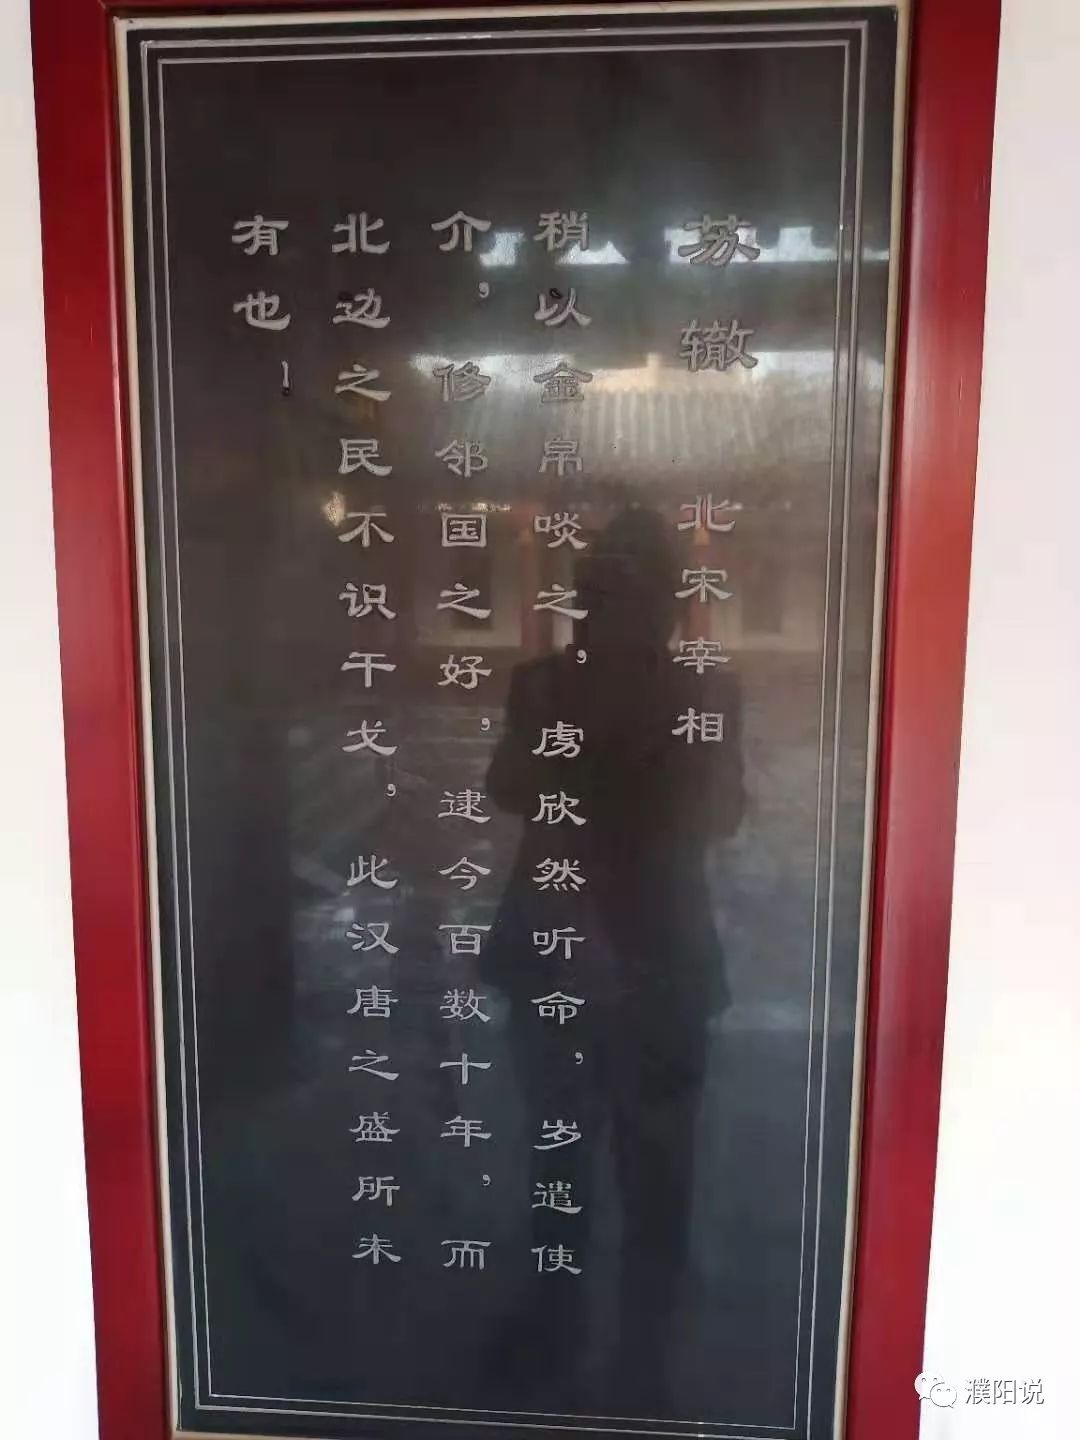 苏辙 北宋宰相
稍以金帛啖之，虏欣然听命，岁遣使
介，修邻国之好，逮今百数十年，而
北边之民不识干戈，此汉唐之盛所未
有也！
濮阳说